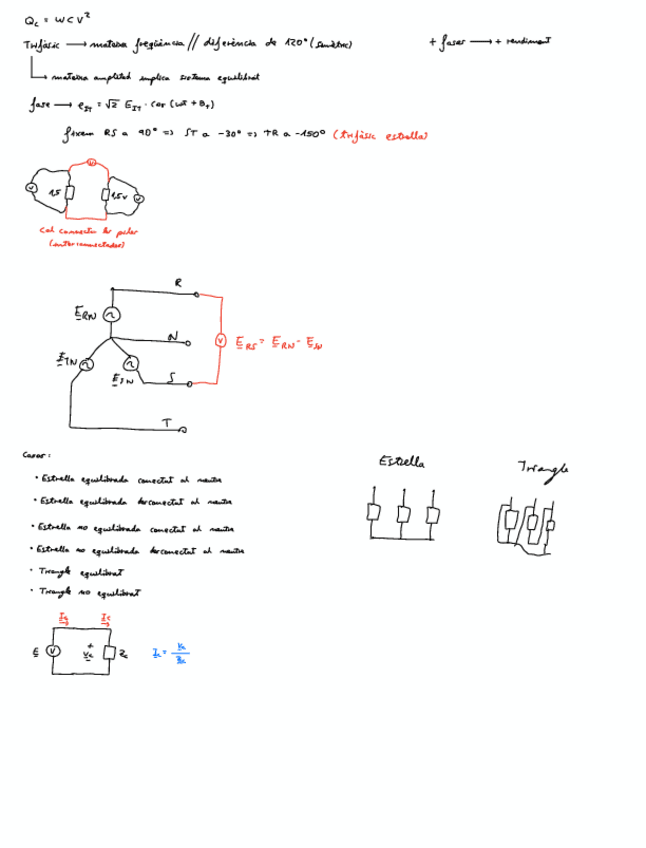 Qc = WCV²
Trifàsic → mateixa freqüència // diferència de 120° (simètric)
+ fases → + rendiment
mateixa amplitud implica sistema equilibrat
fase → e_ST = √2 E_ST · cos (wt + θ_T)
fixem RS a 90° => ST a -30° => TR a -150° (trifàsic estrella)
V
V
1,5
1,5 V
V
Cal connectar les piles
(interconnectades)
R
E_RN
N
V
E_RS = E_RN - E_SN
E_TN
E_SN
S
T
Casos:
Estrella
Triangle
• Estrella equilibrada conectat al neutre
• Estrella equilibrada desconectat al neutre
• Estrella no equilibrada conectat al neutre
• Estrella no equilibrada desconectat al neutre
• Triangle equilibrat
• Triangle no equilibrat
Ic
Ic
E
V
+
Vc
-
Zc
Ic = Vc / Zc